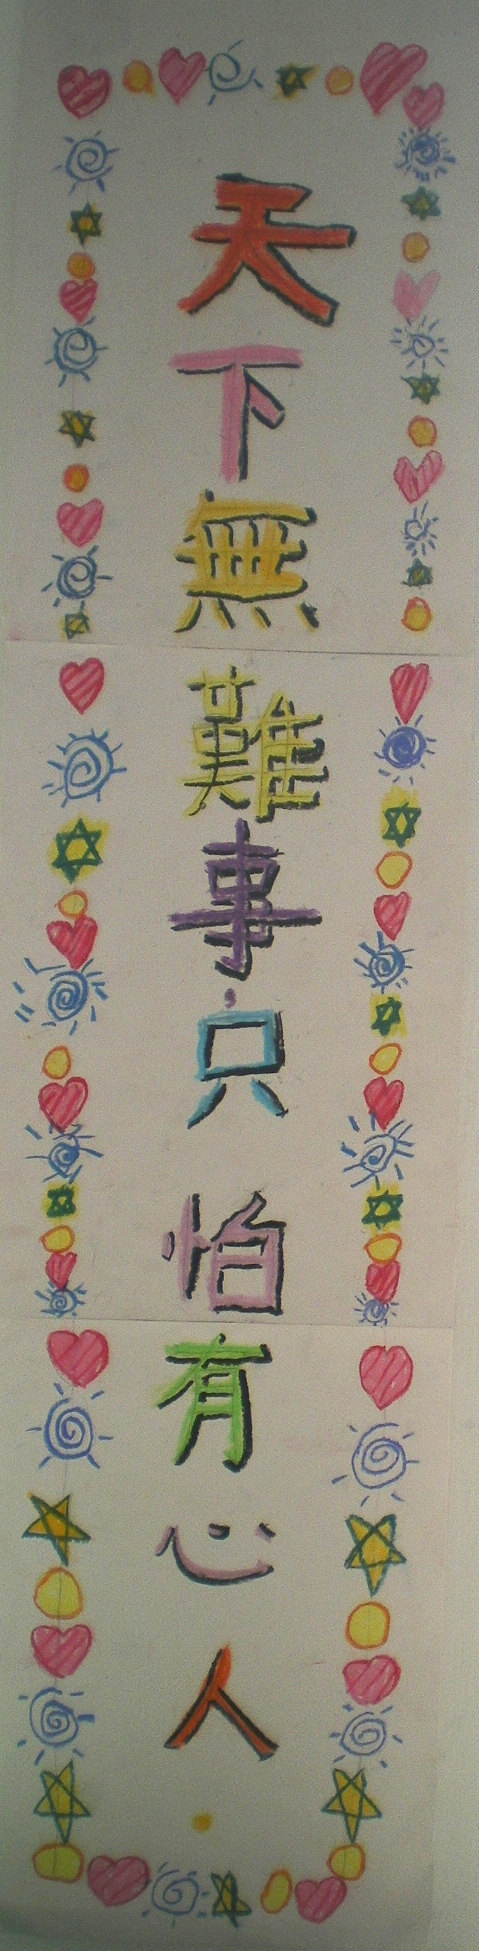 天下無難事，只怕有心人。